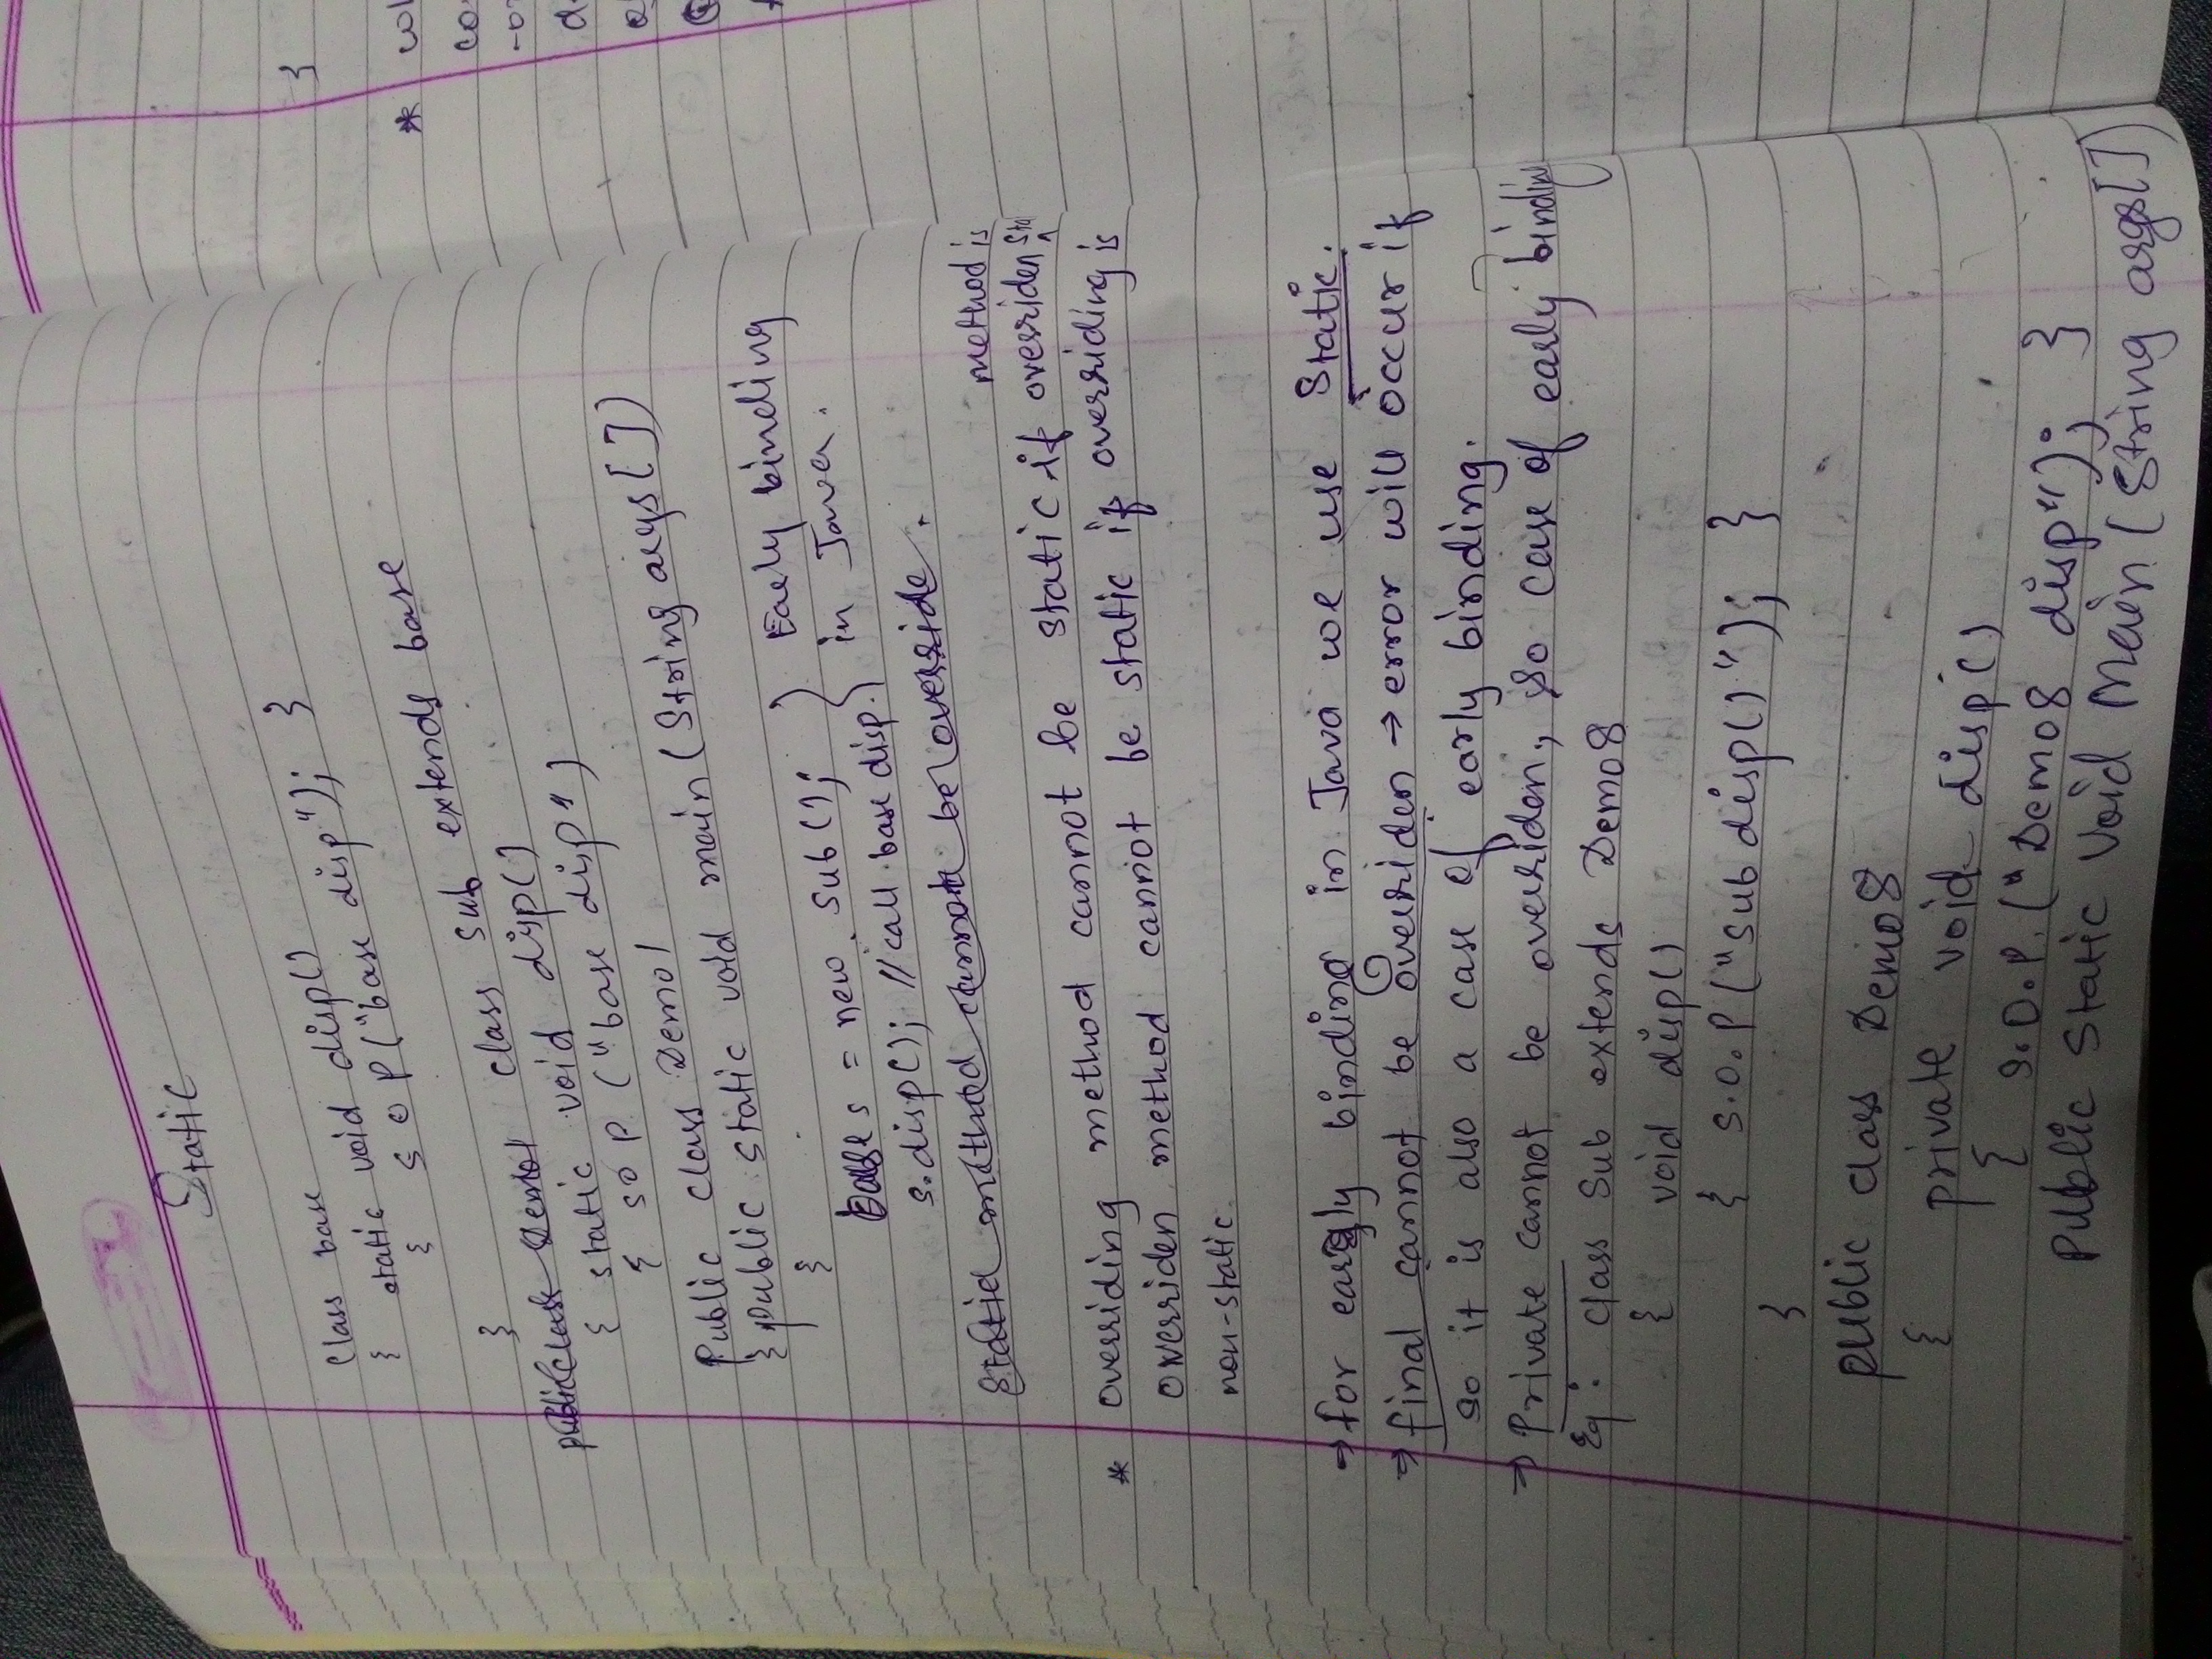 Static
Class base
{ static void disp()
{ S O P ("base disp"); }
}
public class Demo1 class Sub extends base
{ static void disp()
{ SOP. ("base disp")
Public class Demo1
{ public static void main (String args[])
{
base s = new Sub(); } Early binding
s.disp(); // call base disp. in Java.
Static method cannot be override.
method is
* overriding method cannot be static if overriden sta
overriden method cannot be static if overriding is
non-static.
→ for early binding in Java we use Static.
→ final cannot be overriden → error will occur if
so it is also a case of early binding.
→ Private cannot be overriden, so case of early binding
Eg: class Sub extends Demo8
{ void disp()
{ S.O.P ("Sub disp()"); }
}
public class Demo8
{ private void disp()
{ S.O.P. ("Demo8 disp"); }
Public Static Void Main (String args[])
}
*